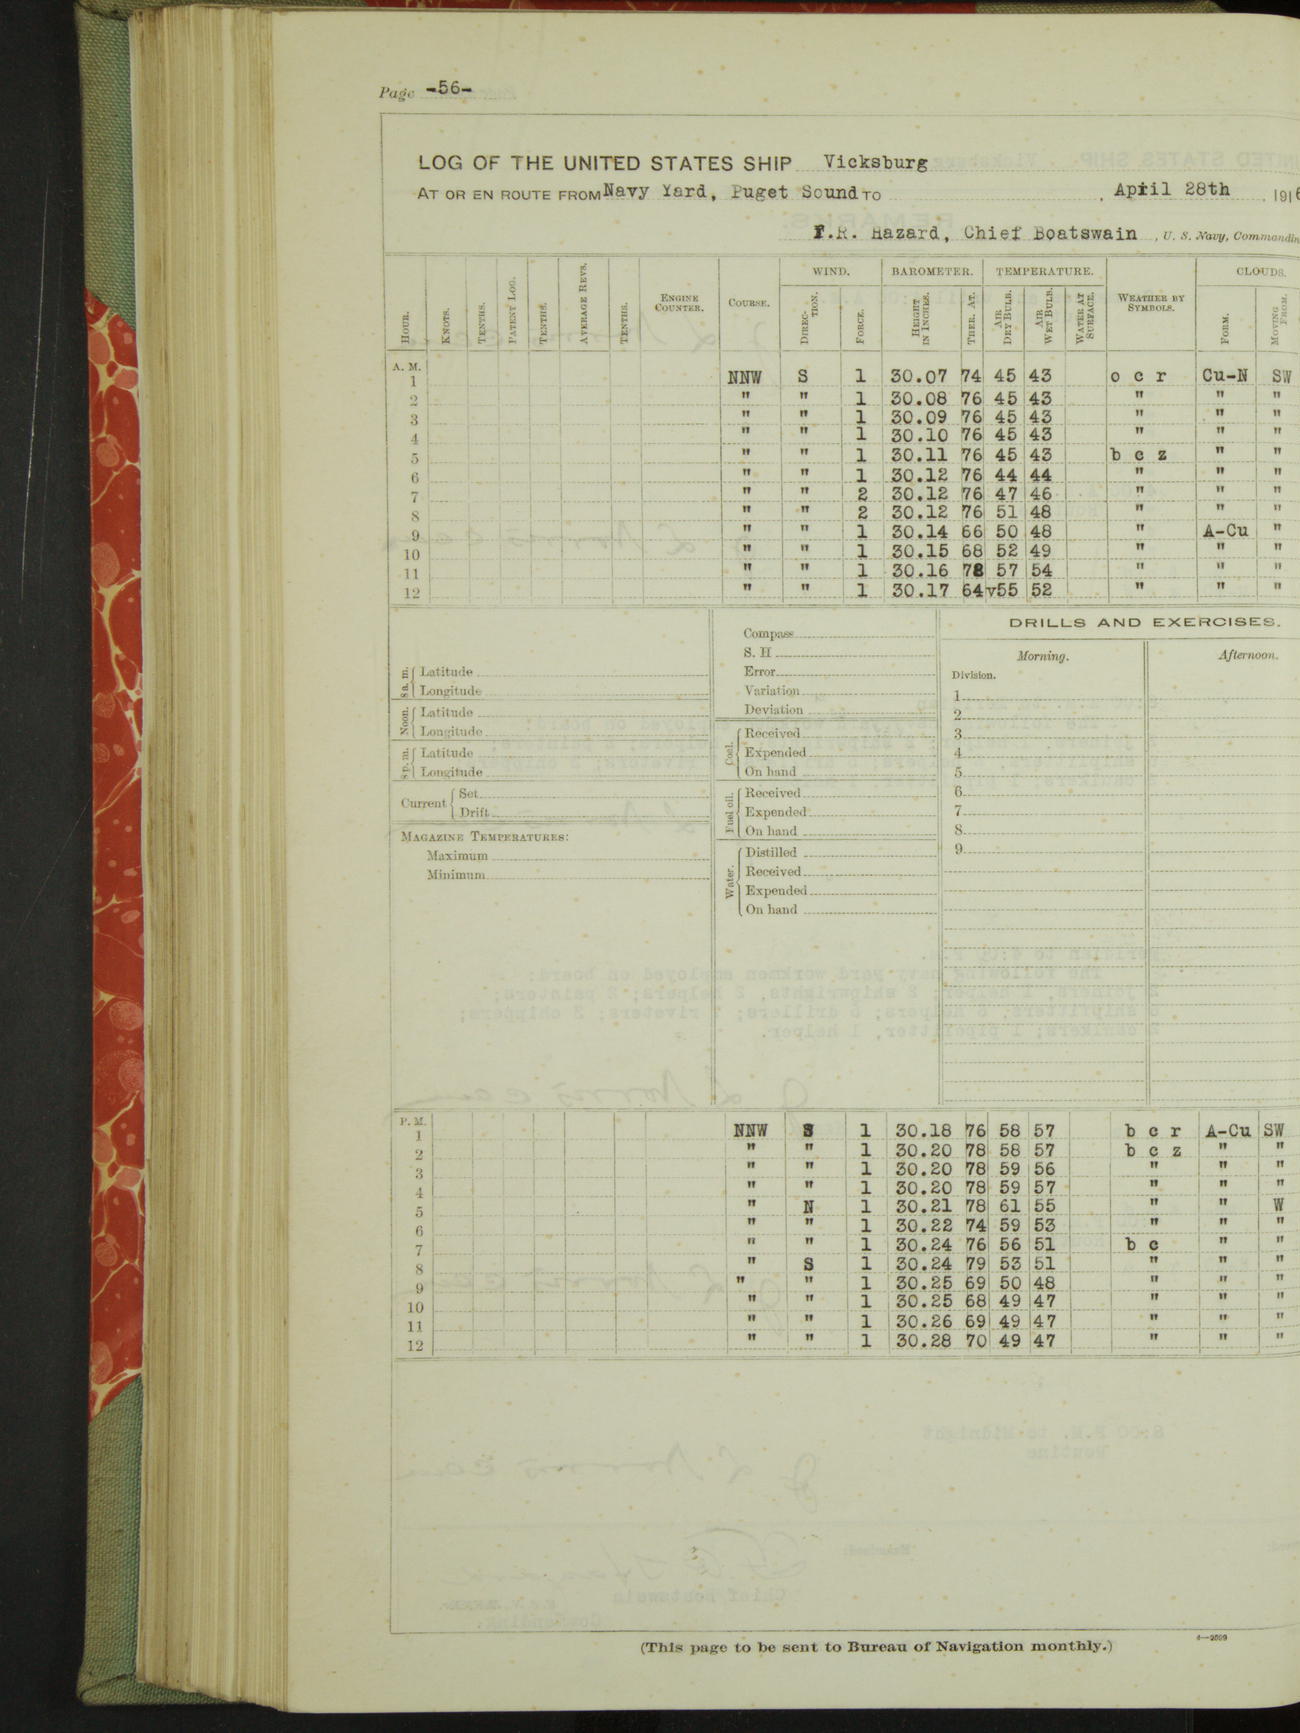 Page -56-
LOG OF THE UNITED STATES SHIP Vicksburg
AT OR EN ROUTE FROM Navy Yard, Puget Sound TO , April 28th , 1916
F.R. Hazard, Chief Boatswain , U. S. Navy, Commandin
HOUR. KNOTS. TENTHS. PATENT LOG. TENTHS. AVERAGE REVS. TENTHS. ENGINE COUNTER. COURSE. WIND. DIRECTION. FORCE. BAROMETER. HEIGHT IN INCHES. THER. AT. TEMPERATURE. AIR DRY BULB. AIR WET BULB. WATER AT SURFACE. WEATHER BY SYMBOLS. CLOUDS. FORM. MOVING FROM.
A. M.
1 NNW S 1 30.07 74 45 43 o c r Cu-N SW
2 " " 1 30.08 76 45 43 " " "
3 " " 1 30.09 76 45 43 " " "
4 " " 1 30.10 76 45 43 " " "
5 " " 1 30.11 76 45 43 b c z " "
6 " " 1 30.12 76 44 44 " " "
7 " " 2 30.12 76 47 46 " " "
8 " " 2 30.12 76 51 48 " " "
9 " " 1 30.14 66 50 48 " A-Cu "
10 " " 1 30.15 68 52 49 " " "
11 " " 1 30.16 78 57 54 " " "
12 " " 1 30.17 64v55 52 " " "
8 a. m. Latitude
Longitude
Noon. Latitude
Longitude
8 p. m. Latitude
Longitude
Current Set
Drift
MAGAZINE TEMPERATURES:
Maximum
Minimum
Compass
S. H
Error
Variation
Deviation
Coal. Received
Expended
On hand
Fuel oil. Received
Expended
On hand
Water. Distilled
Received
Expended
On hand
DRILLS AND EXERCISES.
Morning. Afternoon.
Division.
1
2
3
4
5
6
7
8
9
P. M.
1 NNW S 1 30.18 76 58 57 b c r A-Cu SW
2 " " 1 30.20 78 58 57 b c z " "
3 " " 1 30.20 78 59 56 " " "
4 " " 1 30.20 78 59 57 " " "
5 " N 1 30.21 78 61 55 " " W
6 " " 1 30.22 74 59 53 " " "
7 " " 1 30.24 76 56 51 b c " "
8 " S 1 30.24 79 53 51 " " "
9 " " 1 30.25 69 50 48 " " "
10 " " 1 30.25 68 49 47 " " "
11 " " 1 30.26 69 49 47 " " "
12 " " 1 30.28 70 49 47 " " "
(This page to be sent to Bureau of Navigation monthly.)